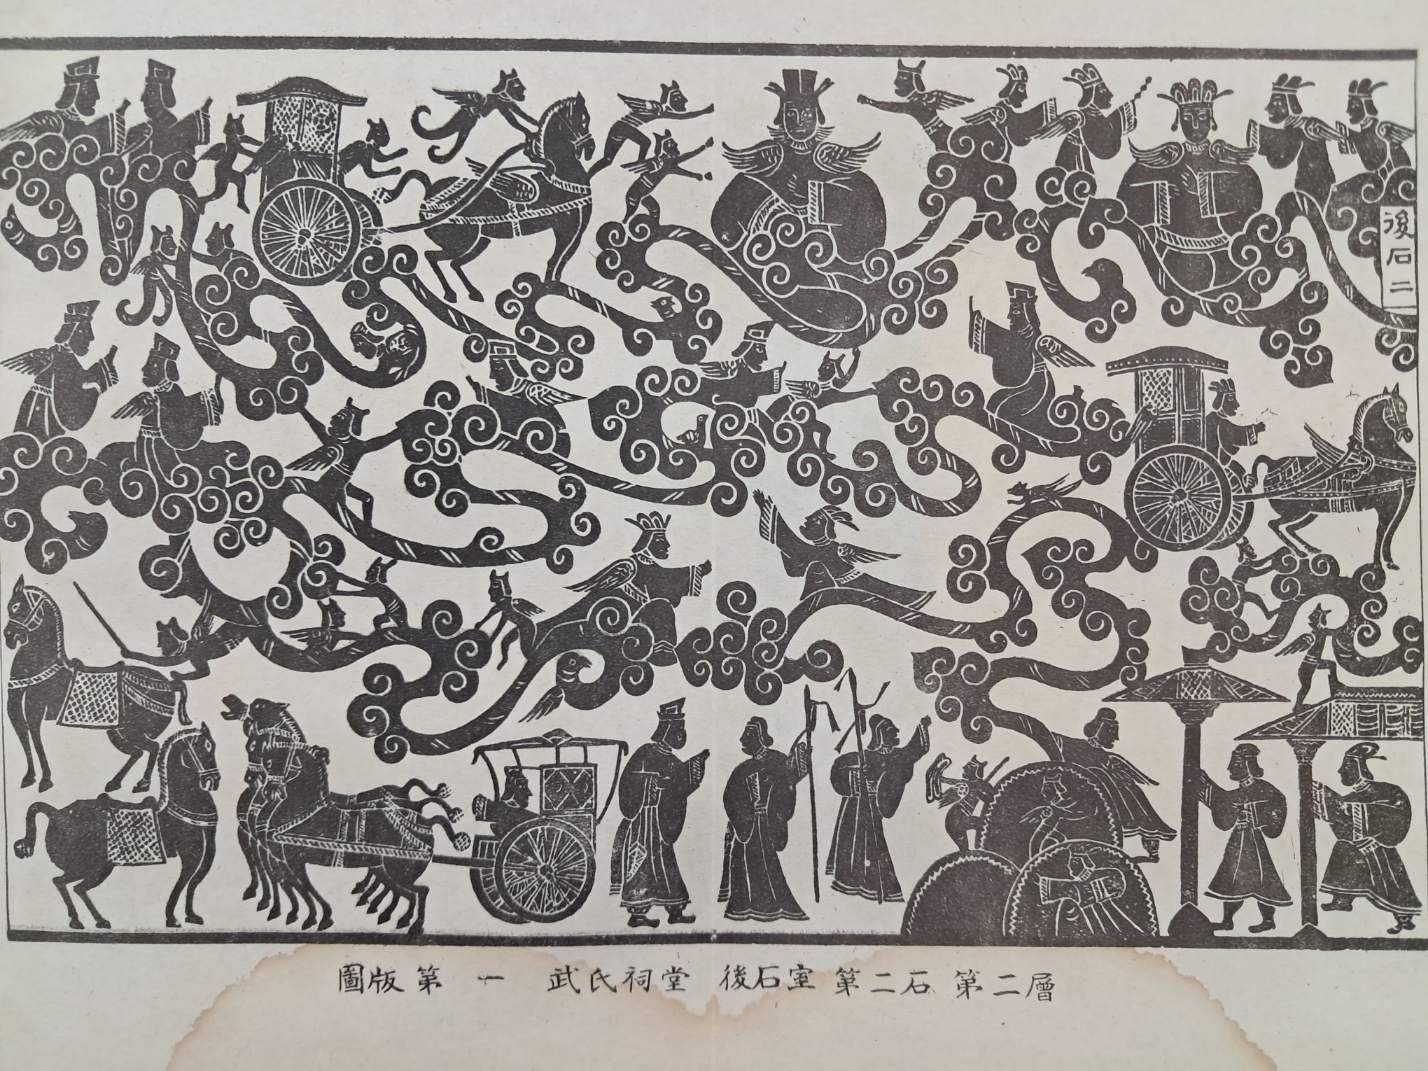 後石二
圖版第一 武氏祠堂 後石室 第二石 第二層